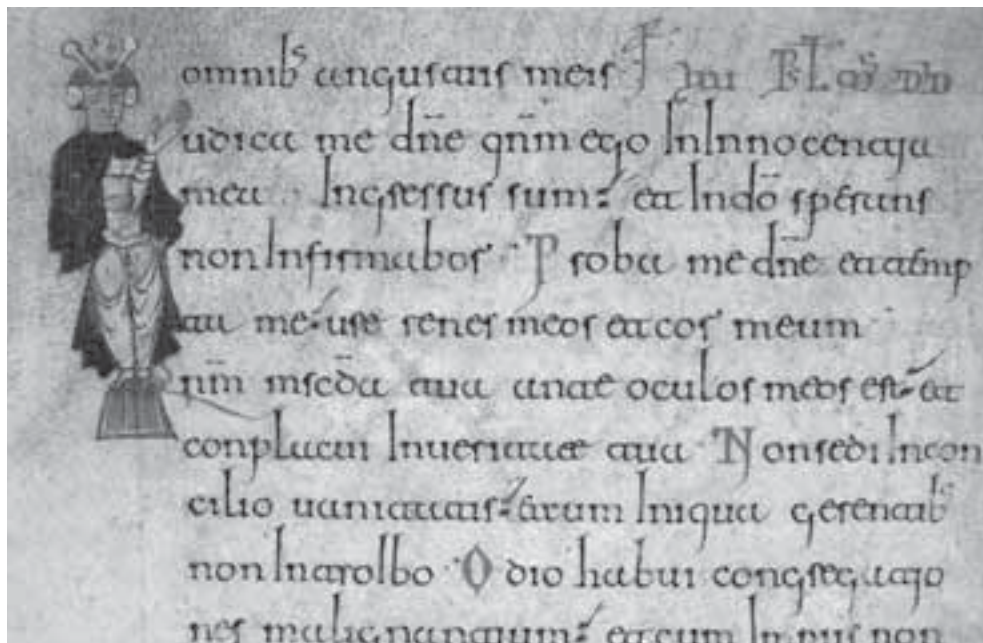 omnib angustiis meis
udica me dn̄e qn̄m ego In Innocentia
mea · Ingressus sum: et In dō sperans
non Infirmabor · Proba me dn̄e et temp
ta me: ure renes meos et cor meum
nm̄ mscd̄a tua ante oculos meos est: et
conplacui In ueritate tua Non sedi In con
cilio uanitatis: et cum Iniqua gerentib
non Introibo · Odio habui congregatio
nes malignantium: et cum Impiis non